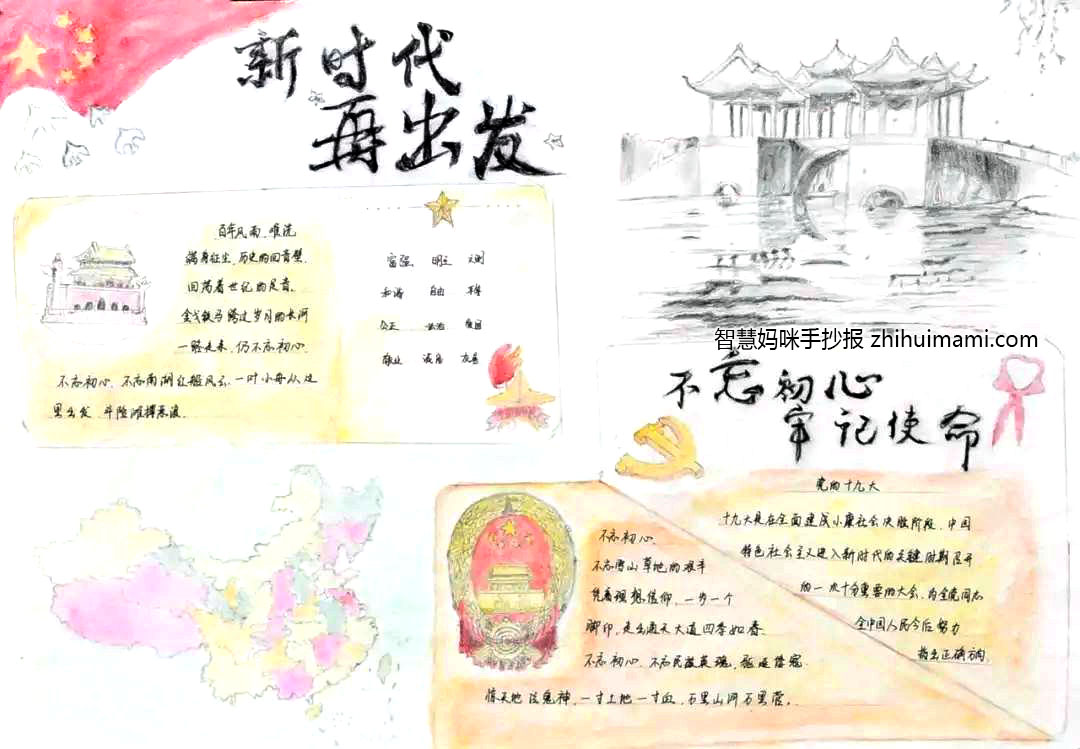 新时代
再出发
百年风雨、唯洗
满身征尘、历史的回音壁
回荡着世纪的足音。
金戈铁马 腾过岁月的长河
一路走来，仍不忘初心
不忘初心、不忘南湖红船风云、一叶小舟从这
里出发 斗险滩搏恶浪
富强 明主 文明
和谐 自由 平等
公正 法治 爱国
敬业 诚信 友善
智慧妈咪手抄报 zhihuimami.com
不忘初心
牢记使命
党的十九大
十九大是在全面建成小康社会决胜阶段、中国
特色社会主义进入新时代的关键时期召开
的一次十分重要的大会、为全党同志
全中国人民今后努力
指出正确方向
不忘初心、
不忘雪山草地的艰辛
凭着理想信仰、一步一个
脚印，走出通天大道四季如春
不忘初心、不忘民族英魂、
惊天地泣鬼神，一寸土地一寸血、万里山河万里营。